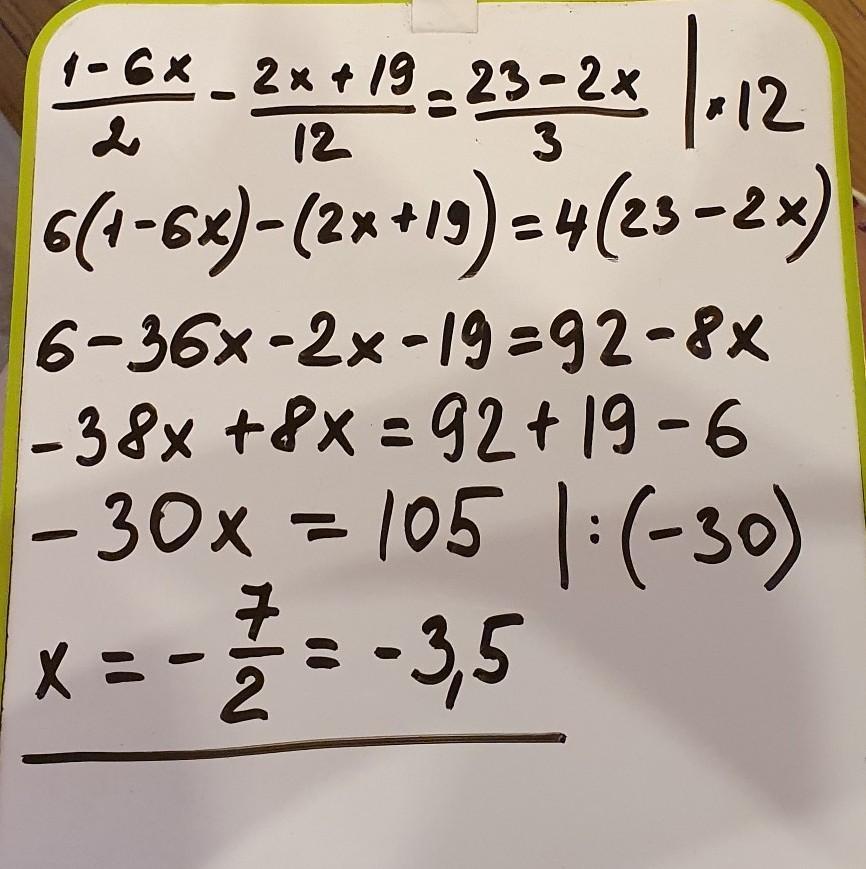 (1-6x)/2 - (2x+19)/12 = (23-2x)/3 | · 12
6(1-6x)-(2x+19)=4(23-2x)
6-36x-2x-19=92-8x
-38x+8x=92+19-6
-30x = 105 |:(-30)
x = -7/2 = -3,5